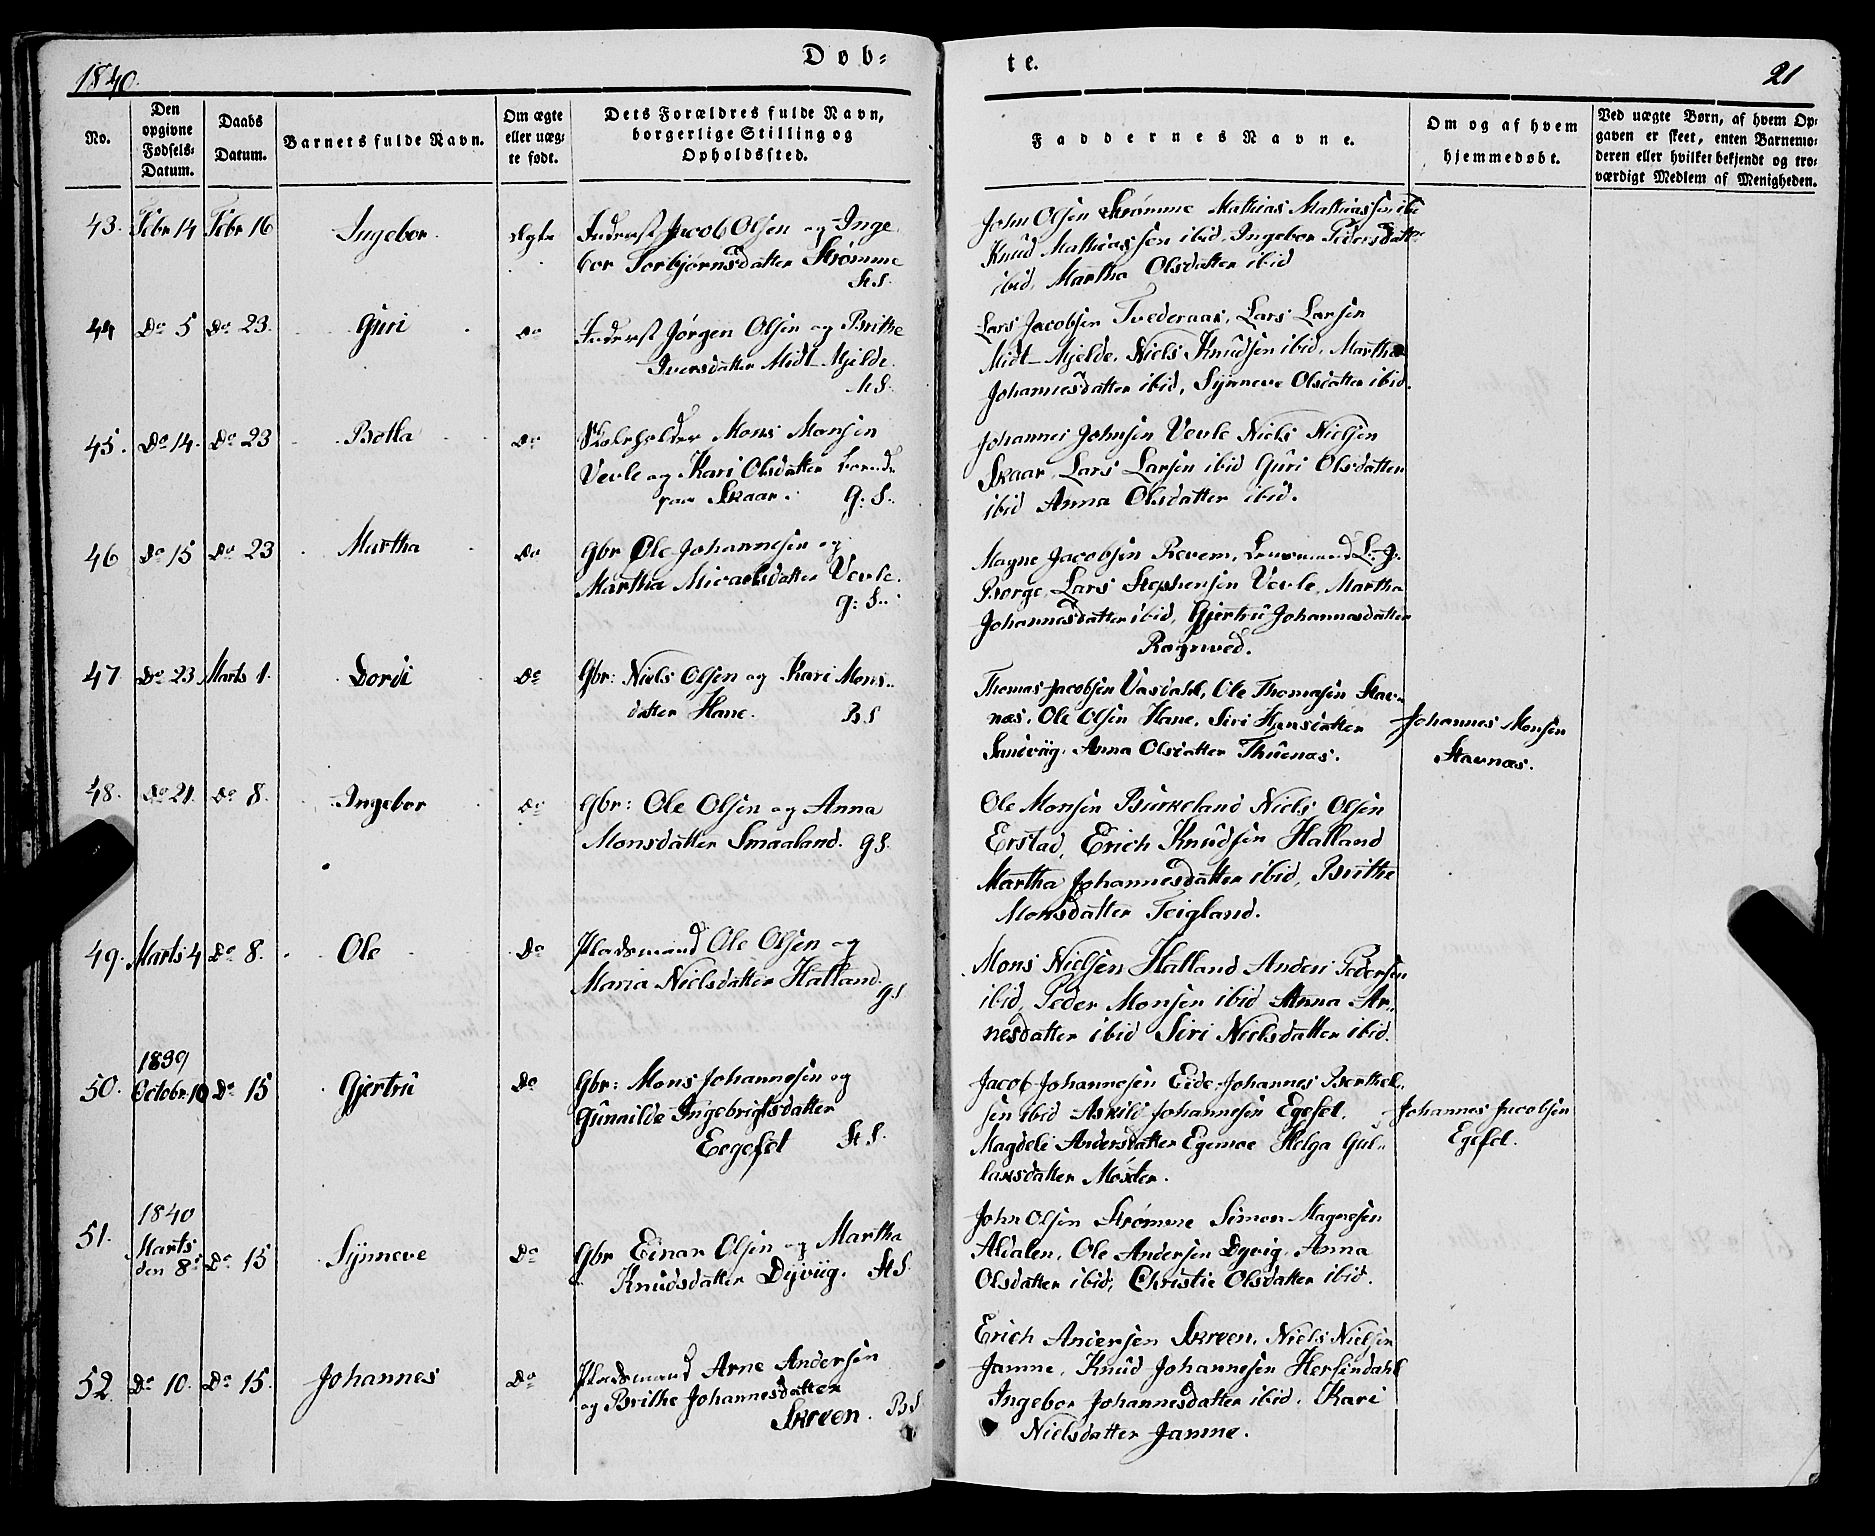 1840.
Døb-
te.
21
No.
Den opgivne Fødsels-Datum.
Daabs Datum.
Barnets fulde Navn.
Om ægte eller uæg-te født.
Dets Forældres fulde Navn, borgerlige Stilling og Opholdssted.
Faddernes Navne.
Om og af hvem hjemmedøbt.
Ved uægte Børn, af hvem Op-
gaven er skeet, enten Barnemo-
deren eller hvilket bekjendt og tro-
værdigt Medlem af Menigheden.
43. Febr 14 Febr 16 Ingebor ægte
Inderst Jacob Olsen og Inge
bor Torbjørnsdatter Strømme
St S.
John Olsen Strømme Mathias Mathiassen ibi
Knud Mathiassen ibid, Ingebor Pedersdatt
ibid, Martha Olsdatter ibid
44 Do 5 Do 23. Guri Do
Inderst Jørgen Olsen og Brithe
Iversdatter Midt-Mjelde.
Lars Jacobsen Tvederaas, Lars Larsen
Midt-Mjelde, Niels Knudsen ibid, Martha
Johannesdatter ibid, Synneve Olsdatter ibid.
45. Do 14. Do 23 Botla Do
Skoleholder Mons Monsen
Vevle og Kari Olsdatter
paa Skaar. G: S..
Johannes Johnsen Vevle Niels Nielsen
Skaar, Lars Larsen ibid Guri Olsdatter
ibid Anna Olsdatter ibid.
46 Do 15 Do 23 Martha Do
Gbr Ole Johannesen og
Martha Micaelsdatter Vevle.
g: S..
Magne Jacobsen Revem, Lensmand L. J.
Borge, Lars Stephensen Vevle, Martha
Johannesdatter ibid, Gjertru Johannesdatter
Rognved.
47 Do 23 Marts 1. Dordi Do
Gbr: Niels Olsen og Kari Mons-
datter Hane. B S
Thomas Jacobsen Vasdahl, Ole Thomasen Stav-
næs, Ole Olsen Hane, Siri Hansdatter
Sandviig, Anna Olsdatter Thuenæs.
Johannes Monsen
Stavnæs.
48. Do 21. Do 8. Ingebor Do
Gbr: Ole Olsen og Anna
Monsdatter Smaaland. g S.
Ole Monsen Birkeland Niels Olsen
Erstad, Erich Knudsen Halland
Martha Johannesdatter ibid, Brithe
Monsdatter Teigland.
49. Marts 4 Do 8. Ole Do
Pladsmand Ole Olsen og
Maria Nielsdatter Halland.
g S
Mons Nielsen Halland Anders Pedersen
ibid, Peder Monsen ibid Anna Ar-
nesdatter ibid Siri Nielsdatter ibid.
1839
50. Octobr. 10 Do 15 Gjertru Do
Gbr: Mons Johannesen og
Gunnilde Ingebrigtsdatter
Eegeset St S.
Jacob Johannesen Eide, Johannes Berthel-
sen ibid Askild Johannesen Egeset.
Magdeli Andersdatter Egemoe Helga Gul-
laksdatter Møster.
Johannes Jacobsen
Egeset.
1840
51. Marts
den 8de Do 15 Synneve Do
Gbr Einar Olsen og Martha
Knudsdatter Dyviig. St S.
John Olsen Strømme Simon Magnesen
Aadalen, Ole Andersen Dyvig, Anna
Olsdatter ibid, Christie Olsdatter ibid.
52. Do 10. Do 15. Johannes Do
Pladsmand Arne Andersen
og Brithe Johannesdatter
Skreen. B S
Erich Andersen Skreen, Niels Nielsen
Jamne, Knud Johannesen Hersindahl
Ingebor Johannesdatter ibid, Kari
Nielsdatter Jamne.